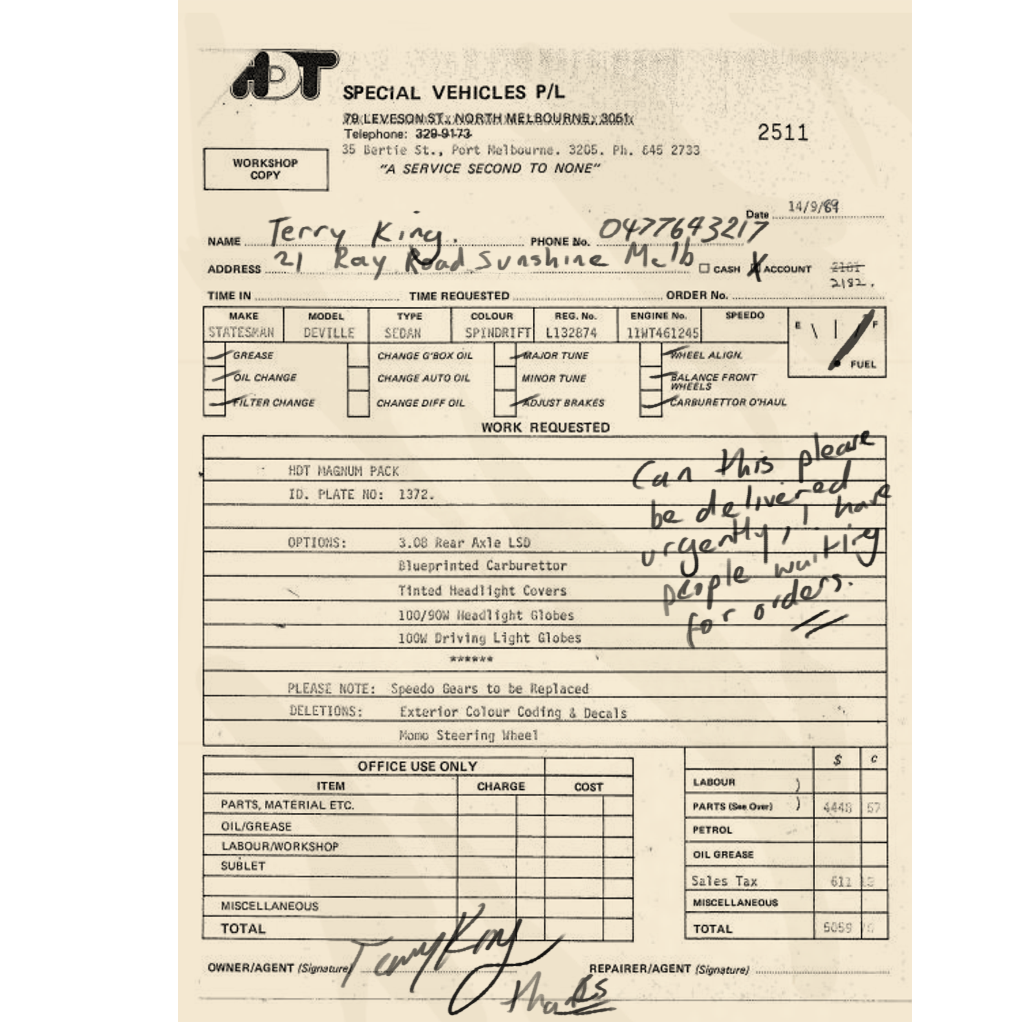 HDT
SPECIAL VEHICLES P/L
79 LEVESON ST., NORTH MELBOURNE, 3051.
Telephone: 329-9173
35 Bertie St., Port Melbourne. 3205. Ph. 645 2733
"A SERVICE SECOND TO NONE"
2511
WORKSHOP
COPY
Date 14/9/
NAME Terry King. PHONE No. 0477643217
ADDRESS 21 Ray Road Sunshine Melb CASH X ACCOUNT 2181
2182.
TIME IN TIME REQUESTED ORDER No.
MAKE MODEL TYPE COLOUR REG. No. ENGINE No. SPEEDO
STATESMAN DEVILLE SEDAN SPINDRIFT L132874 11WT461245
E F
FUEL
GREASE CHANGE G'BOX OIL MAJOR TUNE WHEEL ALIGN.
OIL CHANGE CHANGE AUTO OIL MINOR TUNE BALANCE FRONT
WHEELS
FILTER CHANGE CHANGE DIFF OIL ADJUST BRAKES CARBURETTOR O'HAUL
WORK REQUESTED
HDT MAGNUM PACK
ID. PLATE NO: 1372.
OPTIONS: 3.08 Rear Axle LSD
Blueprinted Carburettor
Tinted Headlight Covers
100/90W Headlight Globes
100W Driving Light Globes
******
PLEASE NOTE: Speedo Gears to be Replaced
DELETIONS: Exterior Colour Coding & Decals
Momo Steering Wheel
Can this please
be delivered
urgently, I have
people waiting
for orders.
OFFICE USE ONLY
ITEM CHARGE COST
PARTS, MATERIAL ETC.
OIL/GREASE
LABOUR/WORKSHOP
SUBLET
MISCELLANEOUS
TOTAL
$ c
LABOUR )
PARTS (See Over) ) 4448 57
PETROL
OIL GREASE
Sales Tax 611
MISCELLANEOUS
TOTAL 5059
OWNER/AGENT (Signature) Terry King REPAIRER/AGENT (Signature)
thanks